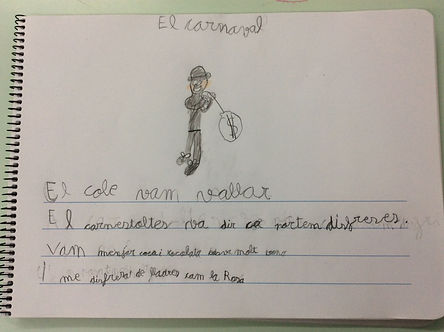 El carnaval
$
El cole vam vallar
El carnestoltes va dir ce portem disfreses.
Vam menjar coca i xocolata molt
I me disfresat de lladres cam la Rosa